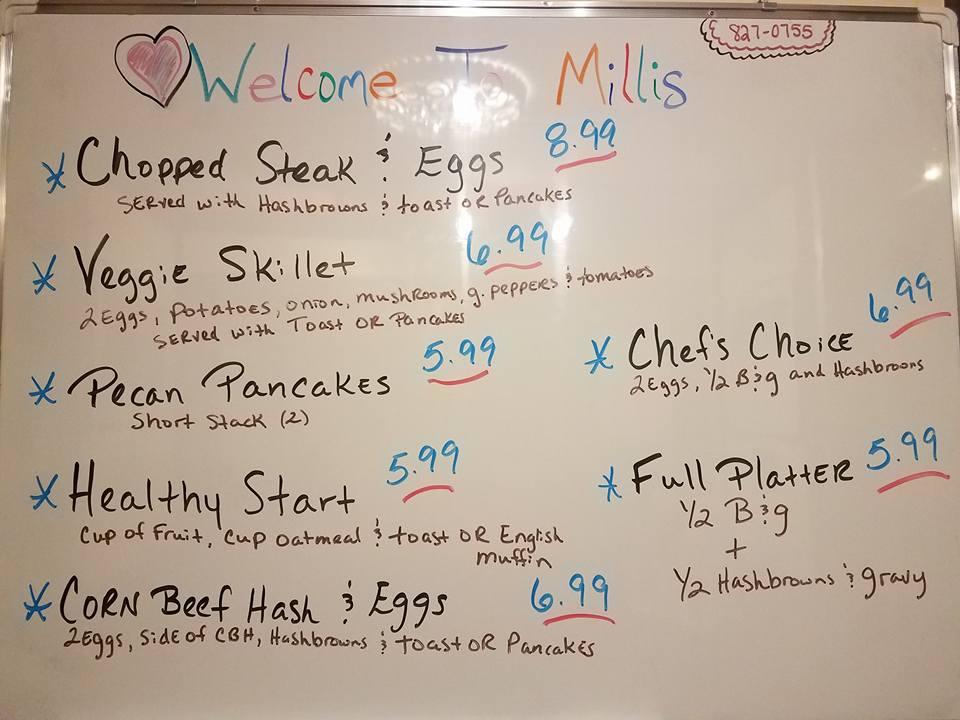 827-0755
Welcome To Millis
* Chopped Steak & Eggs 8.99
Served with Hashbrowns & toast OR Pancakes
* Veggie Skillet 6.99
2 Eggs, Potatoes, onion, mushrooms, g. peppers & tomatoes
Served with Toast OR Pancakes
* Pecan Pancakes 5.99
Short Stack (2)
* Healthy Start 5.99
Cup of Fruit, Cup oatmeal & toast OR English
muffin
* Corn Beef Hash & Eggs 6.99
2 Eggs, Side of CBH, Hashbrowns & toast OR Pancakes
* Chef's Choice 6.99
2 Eggs, 1/2 B & g and Hashbroons
* Full Platter 5.99
1/2 B & g
+
1/2 Hashbrowns & gravy